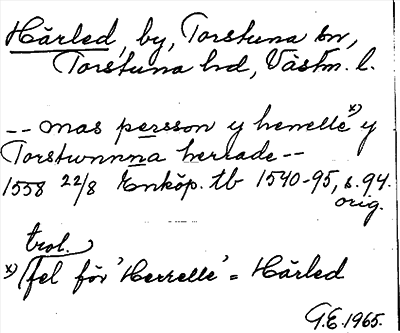 Hårled, by, Torstuna sn,
Torstuna hd, Västm. l.
-- mas persson y henelle x) y
Torstunnna herrade --
1558 22/8 Enköp. tb 1540-95, s. 94.
orig.
trol.
x) fel för 'Herrelle' = Hårled
G.E. 1965.